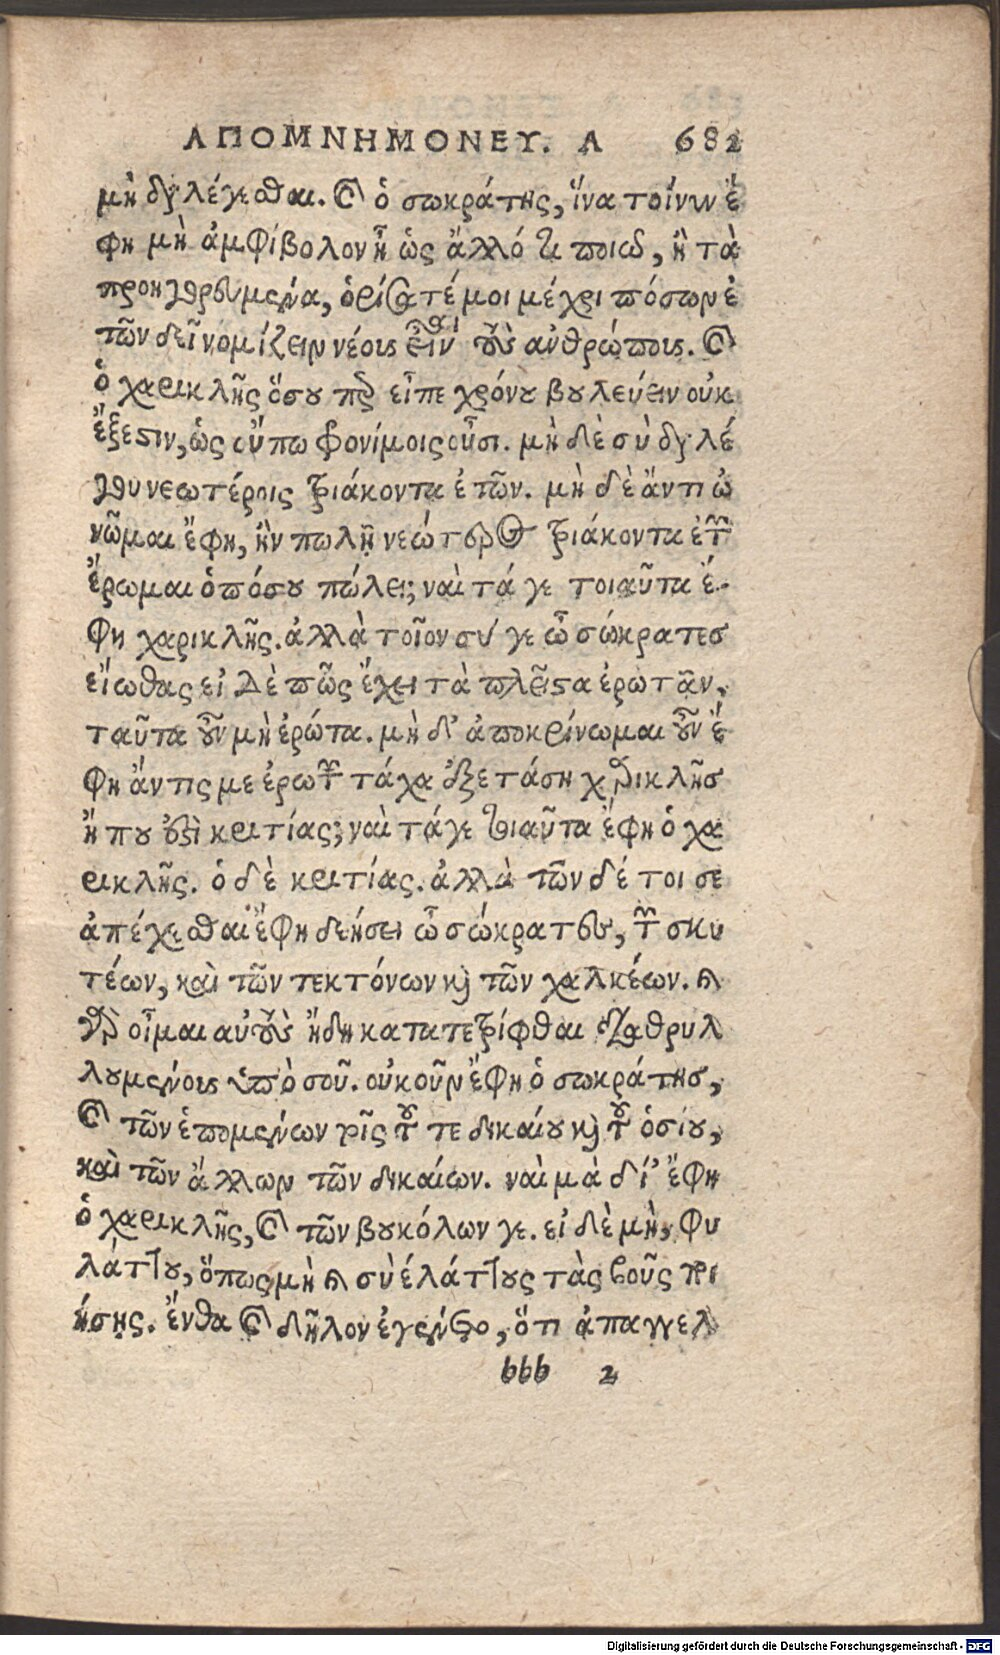 ΑΠΟΜΝΗΜΟΝΕΥ. Α 682
μὴ διαλέγεσθαι. καὶ ὁ σωκράτης, ἵνα τοίνυν ἔ
φη μὴ ἀμφίβολον ᾖ ὡς ἄλλό τι ποιῶ, ἢ τὰ
προηγορευμένα, ὁρίσατέ μοι μέχρι πόσων ἐ
τῶν δεῖ νομίζειν νέους εἶναι τοὺς ἀνθρώπους. καὶ
ὁ χαρικλῆς ὅσου περ εἶπε χρόνου βουλεύειν οὐκ
ἔξεστιν, ὡς οὔπω φρονίμοις οὖσι. μὴ δὲ σὺ διαλέ
γου νεωτέροις τριάκοντα ἐτῶν. μὴ δὲ ἄν τι ὠ
νῶμαι ἔφη, ἢν πωλῇ νεώτερος τριάκοντα ἐτῶν
ἔρωμαι ὁπόσου πώλει; ναὶ τά γε τοιαῦτα ἔ-
φη χαρικλῆς. ἀλλὰ τοῖον σύ γε ὦ σώκρατες
εἴωθας εἰ δὲ πῶς ἔχει τὰ πλεῖστα ἐρωτᾶν,
ταῦτα οὖν μὴ ἐρώτα. μὴ δ' ἀποκρίνωμαι οὖν ἔ
φη ἄν τις με ἐρωτῶν τάχα ἐξετάσῃ χαρικλῆς
ἢ που ἐξὶ κριτίας; ναὶ τά γε τοιαῦτα ἔφη ὁ χα
ρικλῆς. ὁ δὲ κριτίας. ἀλλὰ τῶν δέ τοι σε
ἀπέχεσθαι ἔφη δεήσει ὦ σώκρατες, τῶν σκυ
τέων, καὶ τῶν τεκτόνων καὶ τῶν χαλκέων. καὶ
γὰρ οἶμαι αὐτοὺς ἤδη κατατετρίφθαι διαθρυλ
λουμένους ὑπὸ σοῦ. οὐκοῦν ἔφη ὁ σωκράτης,
καὶ τῶν ἑπομένων τοῖς τοῦ τε δικαίου καὶ τοῦ ὁσίου,
καὶ τῶν ἄλλων τῶν δικαίων. ναὶ μὰ δί' ἔφη
ὁ χαρικλῆς, καὶ τῶν βουκόλων γε. εἰ δὲ μὴ, φυ
λάττου, ὅπως μὴ καὶ σὺ ἐλάττους τὰς βοῦς ποι
ήσῃς. ἔνθα καὶ δῆλον ἐγένετο, ὅτι ἀπαγγελ
bbb 2
Digitalisierung gefördert durch die Deutsche Forschungsgemeinschaft - DFG